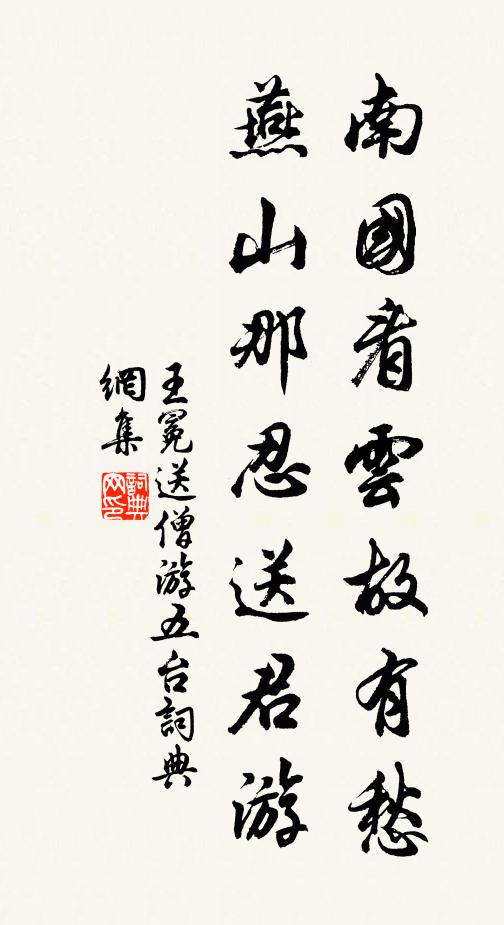 南國看雲故有愁
燕山那忍送君游
王冕送僧游五台詞典
網集
詞典
网印